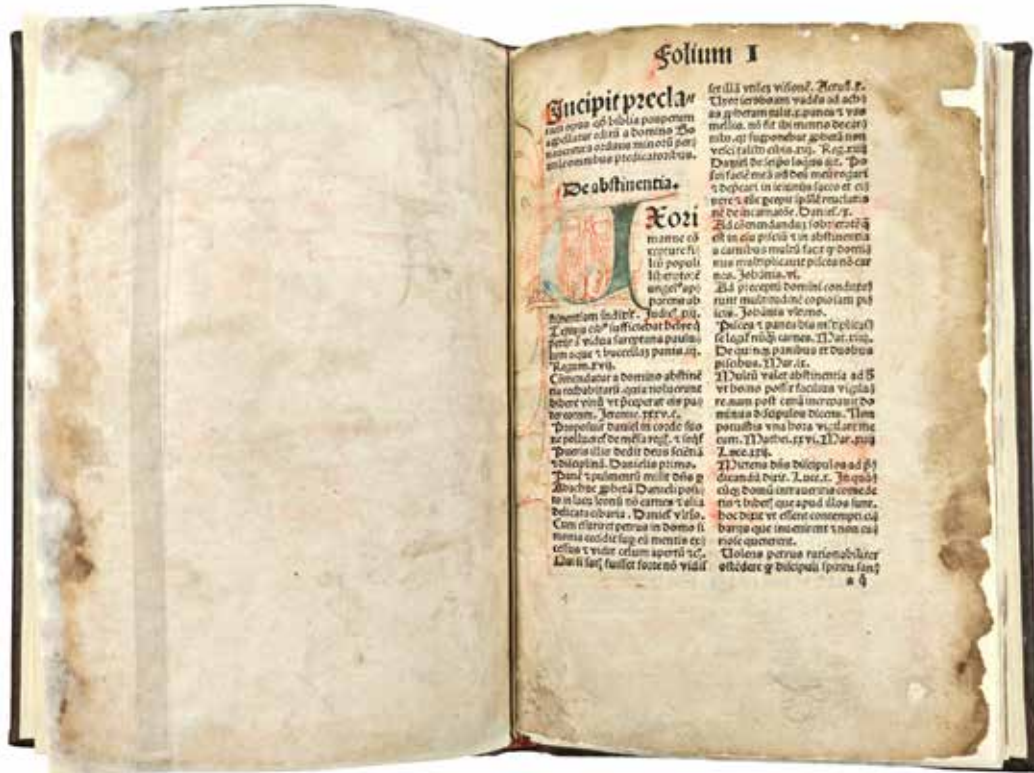 Folium I
Incipit precla⸗
rum opus qd biblia pauperum
appellatur editū a domino Bo
nauentura ordinis minorū per
utile omnibus predicatoribus.
De abstinentia.
Uxori
manue cō
cepture fi
liū populi
liberatorē
angelꝰ apꝫ
parens ab
stinentiam indixit. Judicꝫ xiij.
Tenuis cibꝰ sufficiebat helye
vidua sareptana paulu
lum aque ⁊ buccellaꝫ panis. iij.
Regum. xvij.
Cōmendatur a domino abstinē
tia rechabitarū. quia noluerunt
bibere vinū vt preceperat eis pa
ter eorum. Jeremie. xxxv. c.
Proposuit daniel in corde suo
ne pollueretꝫ de mēsa regꝫ. ⁊ seqꝫ
Pueris illis dedit deus sciētiā
⁊ disciplinā. Danielis primo.
Panē ⁊ pulmentū misit dn̄s
Abachuc ꝓphetā Danieli posi
to in lacu leonū nō carnes ⁊ alia
delicata cibaria. Danielꝫ vltīo.
Cum esuriret petrus in domo si
monis cecidit sup eū mentis ex
cessus ⁊ vidit celum apertū ⁊c̄.
Qui si fuisset forte nō vidisꝫ
set illā vtileꝫ visionē. Actuū. x.
Uxor ieroboam vadēs ad achi
am ꝓphetam tulit. x. panes ⁊ vas
mellis. nō fit ibi mentio de carni
nibꝰ. qꝛ supponebat ꝓphetā non
vesci talibꝰ cibis. iij. Reg. xiiij
Daniel de seipo loquēs ait. Po
sui faciē meā ad deū meū rogare
⁊ depcari in ieiuniis sacco et ci
nere ⁊ ille
nē de incarnatōe. Danielꝫ. ix.
Ad cōmendandaꝫ sobrietatē
est in esu pisciū ⁊ in abstinentia
a carnibus multū facit ꝙ domi
nus multiplicauit pisces nō car
nes. Johānis. vi.
Ad preceptū domini concluse
runt multitudinē copiosam pis
cium. Johānis vltimo.
Pisces ⁊ panes bis mltiplicasꝫ
se legitꝫ nūqꝫ carnes. Mar. viij.
De quinqꝫ panibus et duobus
piscibus. Mar. ix.
Multū valet abstinentia ad
vt homo possit facilius vigila
re. nam post cenā increpauit do
minus discipulos dicens. Non
potuistis vna hora vigilare me
cum. Mathei. xxvi. Mar. xiiij
Luce. xxij.
Mittens dn̄s discipulos ad
dicandū dixit. Luce. x. In quā
cūqꝫ domū intraueritis comede
tis ⁊ bibetꝫ que apud illos sunt.
hoc dixit vt essent contempti ci
bariis que inuenirent ⁊ non cu
riose quererent.
Uolens petrus rationabiliter
ostēdere ꝙ discipuli spiritu sancꝫ
a ij